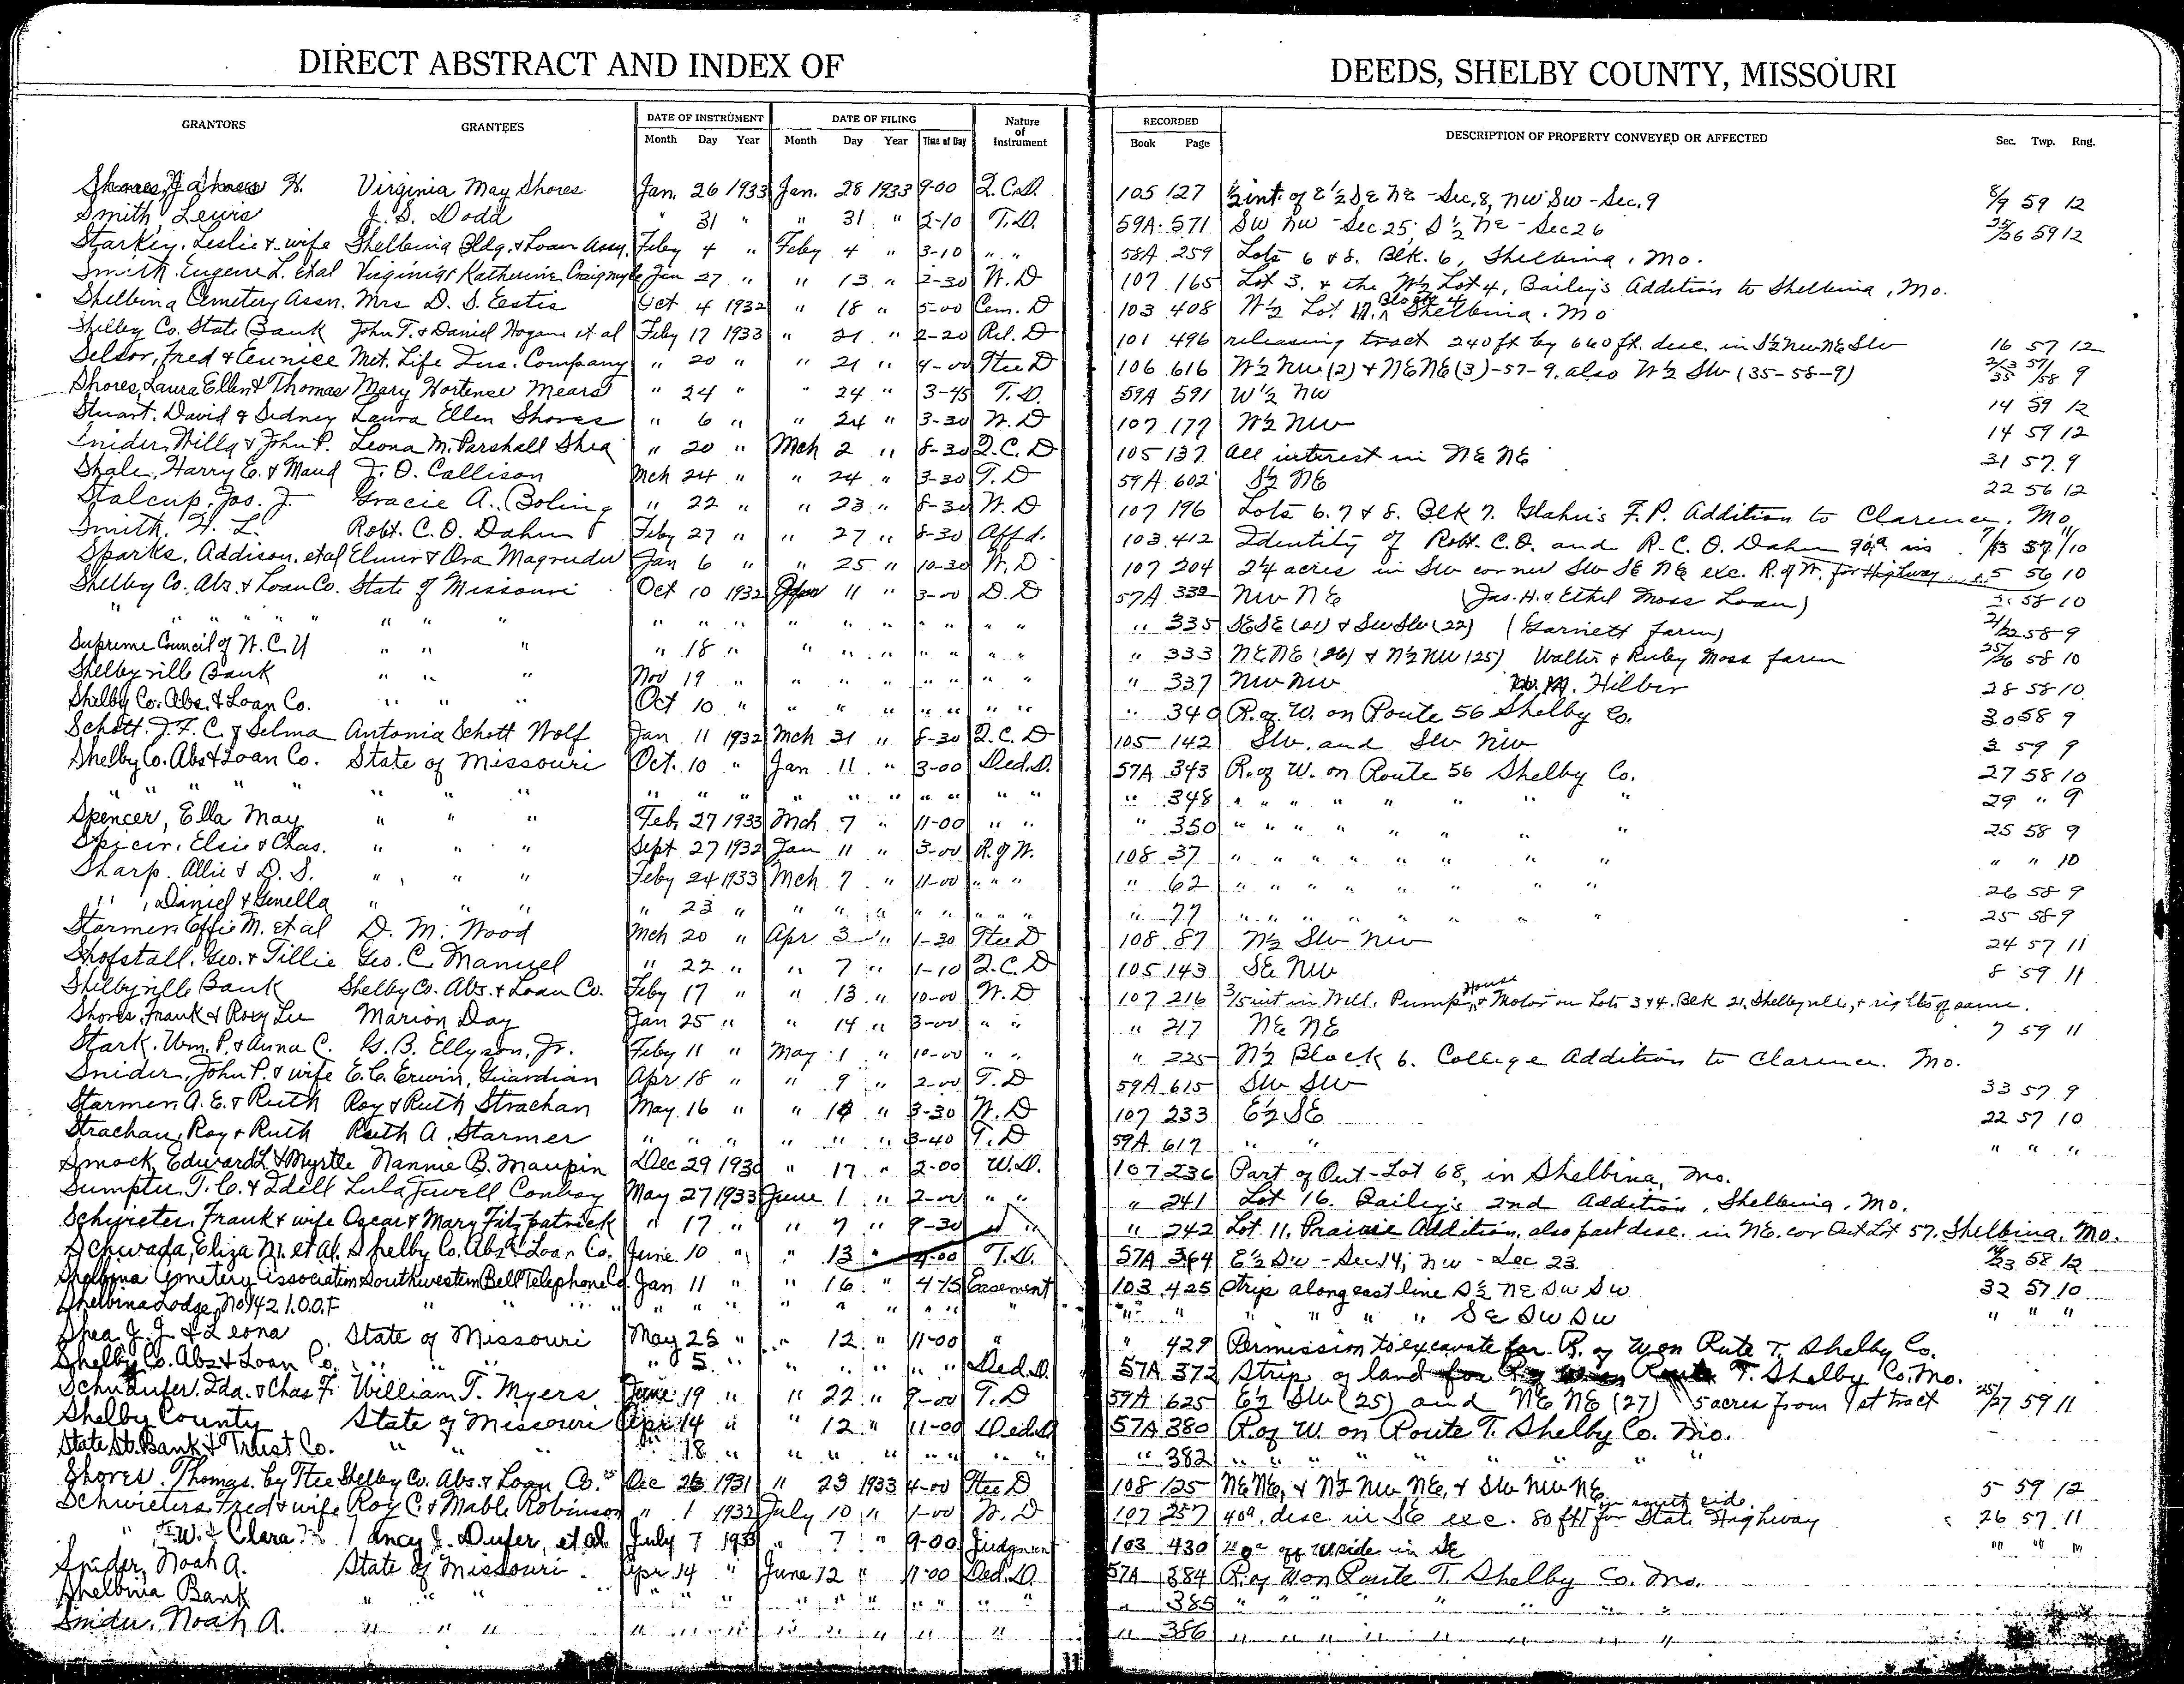 DIRECT ABSTRACT AND INDEX OF DEEDS, SHELBY COUNTY, MISSOURI
GRANTORS GRANTEES DATE OF INSTRUMENT Month Day Year DATE OF FILING Month Day Year Time of Day Nature of Instrument RECORDED Book Page DESCRIPTION OF PROPERTY CONVEYED OR AFFECTED Sec. Twp. Rng.
H. Virginia May Shores Jan. 26 1933 Jan. 28 1933 9-00 Q.C.D. 105 127 ½ int. of E½ SE NE - Sec. 8, NW SW - Sec. 9 8/9 59 12
Smith, Lewis J. S. Dodd " 31 " " 31 " 2-10 T.D. 59A 571 SW NW - Sec 25; S½ NE - Sec 26 25/26 59 12
Starkey, Leslie & wife Shelbina Bldg. & Loan Assn. Feby 4 " Feby 4 " 3-10 " " 58A 259 Lots 6 & 8. Blk. 6, Shelbina, Mo.
Smith, Eugene L. etal Virginia & Katherine Craigmyle Jan 27 " " 13 " 2-30 W.D 107 165 Lot 3, & the W½ Lot 4, Bailey's Addition to Shelbina, Mo.
Shelbina Cemetery Assn. Mrs D. S. Eastis Oct 4 1932 " 18 " 5-00 Cem. D 103 408 W½ Lot Block 4 Shelbina, Mo
Shelby Co. State Bank John T. & Daniel Hogan et al Feby 17 1933 " 21 " 2-20 Rel. D 101 496 releasing tract 240 ft by 660 ft. desc. in S½ NW NE SW 16 57 12
Selsor, Fred & Eunice Met. Life Ins. Company " 20 " " 21 " 4-00 Tee D 106 616 W½ NW (2) & NE NE (3)-57-9, also W½ SW (35-58-9) 2/3 57/ 35 /58 9
Shores, Laura Ellen & Thomas Mary Hortense Mears " 24 " " 24 " 3-45 T.D. 59A 591 W½ NW 14 59 12
Stuart, David & Sidney Laura Ellen Shores " 6 " " 24 " 3-30 W.D 107 177 W½ NW 14 59 12
Snider, Willa & John P. Leona M. Parshall Shea " 20 " Mch 2 " 8-30 Q.C.D 105 137 All interest in NE NE 31 57 9
Shale, Harry E. & Maud J. O. Callison Mch 24 " " 24 " 3-30 T.D 59A 602 S½ NE 22 56 12
Stalcup, Jos. J. Gracie A. Boling " 22 " " 23 " 8-30 W.D 107 196 Lots 6, 7 & 8. Blk 7. Glahn's F.P. Addition to Clarence, Mo.
Smith, H. L. Robt. C. O. Dahm Feby 27 " " 27 " 8-30 Affd. 103 412 Identity of Robt. C.O. and R.C.O. Dahm 90a in 57/10
Sparks, Addison, etal Elmer & Ora Magruder Jan 6 " " 25 " 10-30 W.D 107 204 24 acres in SW corner SW SE NE exc. R. of W. for Highway 5 56 10
Shelby Co. Abs. & Loan Co. State of Missouri Oct 10 1932 Jan 11 " 3-00 D.D 57A 332 NW NE (Jas. H. & Ethel Moss Loan) 58 10
" " " " " " " " " " " " " " " " " " " 335 SE SE (21) & SW SW (22) (Garnett farm) 21/22 58 9
Supreme Council of W.C.U " " " " 18 " " " " " " " " " 333 NE NE (26) & N½ NW (25) Walter & Ruby Moss farm 25/26 58 10
Shelbyville Bank " " " Nov 19 " " " " " " " " " 337 NW NW W. M. Hilber 28 58 10
Shelby Co. Abs. & Loan Co. " " " Oct 10 " " " " " " " " " 340 R. of W. on Route 56 Shelby Co. 30 58 9
Schott, J. F. C. & Selma Antonia Schott Wolf Jan 11 1932 Mch 31 " 8-30 Q.C.D 105 142 SW. and SW NW 3 59 9
Shelby Co. Abs & Loan Co. State of Missouri Oct. 10 " Jan 11 " 3-00 Ded. D. 57A 343 R. of W. on Route 56 Shelby Co. 27 58 10
" " " " " " " " " " " " " " " " " " " 348 " " " " " " " 29 " 9
Spencer, Ella May " " " Feb. 27 1933 Mch 7 " 11-00 " " " 350 " " " " " " " 25 58 9
Spicer, Elsie & Chas. " " " Sept 27 1932 Jan 11 " 3-00 R. of W. 108 37 " " " " " " " " " " 10
Sharp, Allie & D. S. " " " Feby 24 1933 Mch 7 " 11-00 " " " " 62 " " " " " " " " 26 58 9
" , Daniel & Genella " " " " 23 " " " " " " " " " " 77 " " " " " " " " 25 58 9
Starmer, Effie M. et al D. M. Wood Mch 20 " Apr 3 " 1-30 Tee D 108 87 N½ SW NW 24 57 11
Shofstall, Geo. & Tillie Geo. C. Manuel " 22 " " 7 " 1-10 Q.C.D 105 143 SE NW 8 59 11
Shelbyville Bank Shelby Co. Abs. & Loan Co. Feby 17 " " 13 " 10-00 W.D 107 216 3/5 int in Well, Pump House & Motor on Lots 3 & 4. Blk 21, Shelbyville, & rights of same.
Shores, Frank & Roxy Lee Marion Day Jan 25 " " 14 " 3-00 " " " 217 NE NE 7 59 11
Stark, Wm. P. & Anna C. G. B. Ellyson, Jr. Feby 11 " May 1 " 10-00 " " " 225 N½ Block 6. College Addition to Clarence, Mo.
Snider, John P. & wife E. C. Erwin, Guardian Apr 18 " " 9 " 2-00 T.D 59A 615 SW SW 33 57 9
Starmer, A. E. & Ruth Roy & Ruth Strachan May 16 " " " 3-30 W.D 107 233 E½ SE 22 57 10
Strachan, Roy & Ruth Ruth A. Starmer " " " " " " 3-40 T.D 59A 617 " " " " "
Smock, Edward L. & Myrtle Nannie B. Maupin Dec 29 1930 " 17 " 2-00 W.D. 107 236 Part of Out-Lot 68, in Shelbina, Mo.
Sumpter, T. C. & Idell Lula Jewell Conboy May 27 1933 June 1 " 2-00 " " " 241 Lot 16. Bailey's 2nd Addition, Shelbina, Mo.
Schwieter, Frank & wife Oscar & Mary Fitzpatrick " 17 " " 7 " 9-30 " " " 242 Lot 11, Prairie Addition, also part desc. in NE. cor Out Lot 57, Shelbina, Mo.
Schwada, Eliza M. et al. Shelby Co. Abs & Loan Co. June 10 " " 13 " 4-00 T.D. 57A 364 E½ SW - Sec 14; NW - Sec 23 14/23 58 12
Shelbina Cemetery Association Southwestern Bell Telephone Co. Jan 11 " " 16 " 4-15 Easement 103 425 Strip along east line S½ NE SW SW 32 57 10
Shelbina Lodge, No 942 I.O.O.F " " " " " " " " " " " " " " " " " " " SE SW SW " " "
Shea J. J. & Leona State of Missouri May 25 " " 12 " 11-00 " " 429 Permission to excavate for R. of W on Rute T. Shelby Co.
Shelby Co. Abs & Loan Co. " " " " 5 " " " " " " Ded. D. 57A 372 Strip of land T. Shelby Co. Mo.
Ida. & Chas F. William T. Myers June 19 " " 22 " 9-00 T.D 59A 625 E½ SW (25) and NE NE (27) 5 acres from 1st tract 25/27 59 11
Shelby County State of Missouri Apr 14 " " 12 " 11-00 Ded. D 57A 380 R. of W. on Route T. Shelby Co. Mo.
State St. Bank & Trust Co. " " " " 18 " " " " " " " " " 382 " " " " " " " "
Shores, Thomas. by Tee Shelby Co. Abs. & Loan Co. Dec 1931 " 23 1933 4-00 Tee D 108 125 NE NE, & N½ NW NE, & SW NW NE 5 59 12
Schwieters, Fred & wife Roy C. & Mable Robinson " 1 1932 July 10 " 1-00 W.D 107 257 40a. desc in SE exc. 80 ft for State Highway on south side 26 57 11
" W. & Clara J. Dufer, et al July 7 1933 " 7 " 9-00 Judgment 103 430 off W side in SE " " "
Snider, Noah A. State of Missouri Apr 14 " June 12 " 11-00 Ded. D. 57A 384 R. of W on Route T. Shelby Co. Mo.
Shelbina Bank " " " " " " " " " " " " " " 385 " " " " " " " "
Snider, Noah A. " " " " " " " " " " " " " 386 " " " " " " " "